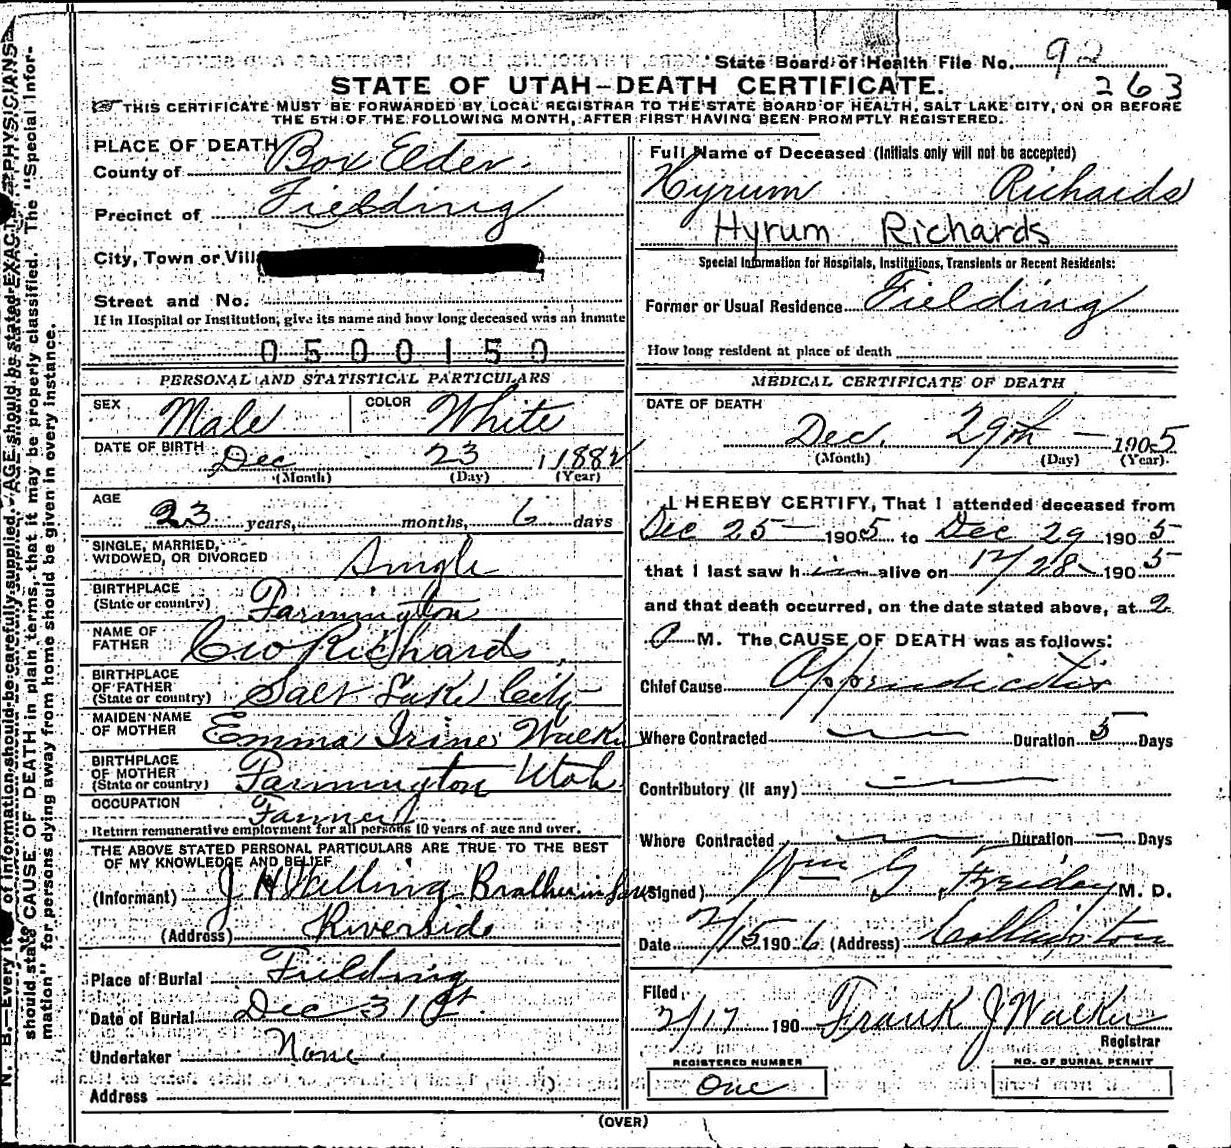 State Board of Health File No. 92
263
STATE OF UTAH-DEATH CERTIFICATE.
THIS CERTIFICATE MUST BE FORWARDED BY LOCAL REGISTRAR TO THE STATE BOARD OF HEALTH, SALT LAKE CITY, ON OR BEFORE
THE 5TH OF THE FOLLOWING MONTH, AFTER FIRST HAVING BEEN PROMPTLY REGISTERED.
PLACE OF DEATH
County of Box Elder
Precinct of Fielding
City, Town or Vill
Street and No.
If in Hospital or Institution, give its name and how long deceased was an inmate
0500150
PERSONAL AND STATISTICAL PARTICULARS
SEX Male COLOR White
DATE OF BIRTH Dec 23 1882
(Month) (Day) (Year)
AGE 23 years, months, 6 days
SINGLE, MARRIED,
WIDOWED, OR DIVORCED Single
BIRTHPLACE
(State or country) Farmington
NAME OF
FATHER Geo Richards
BIRTHPLACE
OF FATHER
(State or country) Salt Lake City
MAIDEN NAME
OF MOTHER Emma Irine Walker
BIRTHPLACE
OF MOTHER
(State or country) Farmington Utah
OCCUPATION Farmer
Return remunerative employment for all persons 10 years of age and over.
THE ABOVE STATED PERSONAL PARTICULARS ARE TRUE TO THE BEST
OF MY KNOWLEDGE AND BELIEF
(Informant) J H Walling Brother in law
(Address) Riverside
Place of Burial Fielding
Date of Burial Dec 31st
Undertaker None
Address
Full Name of Deceased (Initials only will not be accepted)
Hyrum Richards
Hyrum Richards
Special Information for Hospitals, Institutions, Transients or Recent Residents:
Former or Usual Residence Fielding
How long resident at place of death
MEDICAL CERTIFICATE OF DEATH
DATE OF DEATH
Dec. 29th 1905
(Month) (Day) (Year)
I HEREBY CERTIFY, That I attended deceased from
Dec 25 1905 to Dec 29 1905
that I last saw him alive on 12/28 1905
and that death occurred, on the date stated above, at 2
M. The CAUSE OF DEATH was as follows:
Chief Cause Appendicitis
Where Contracted Duration 5 Days
Contributory (if any)
Where Contracted Duration Days
(Signed) Wm G Friday M. D.
Date 2/15 1906 (Address) Collinston
Filed,
2/17 190 Frank J Walker
Registrar
REGISTERED NUMBER NO. OF BURIAL PERMIT
One
(OVER)
N. B.—Every of information should be carefully supplied. AGE should be stated EXACT PHYSICIANS
should state CAUSE OF DEATH in plain terms, that it may be properly classified. The "Special Infor-
mation" for persons dying away from home should be given in every instance.